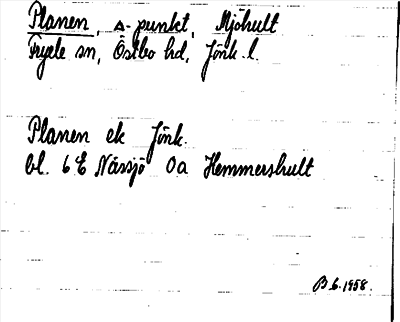 Planen, △-punkt, Mjöhult
Fryele sn, Östbo hd, Jönk. l.
Planen ek Jönk.
bl. 6 E Nässjö 0a Hemmershult
B.6.1958.